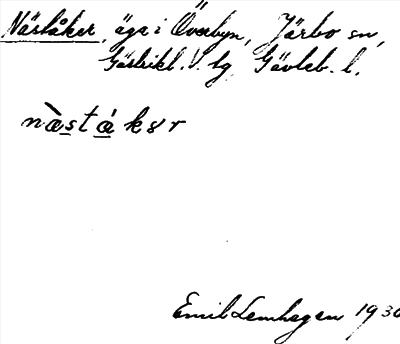 Näståker, äga i Överbyn, Järbo sn,
Gästrikl. V. tg, Gävleb. l.
nàstákər
Emil Lemhagen 1930